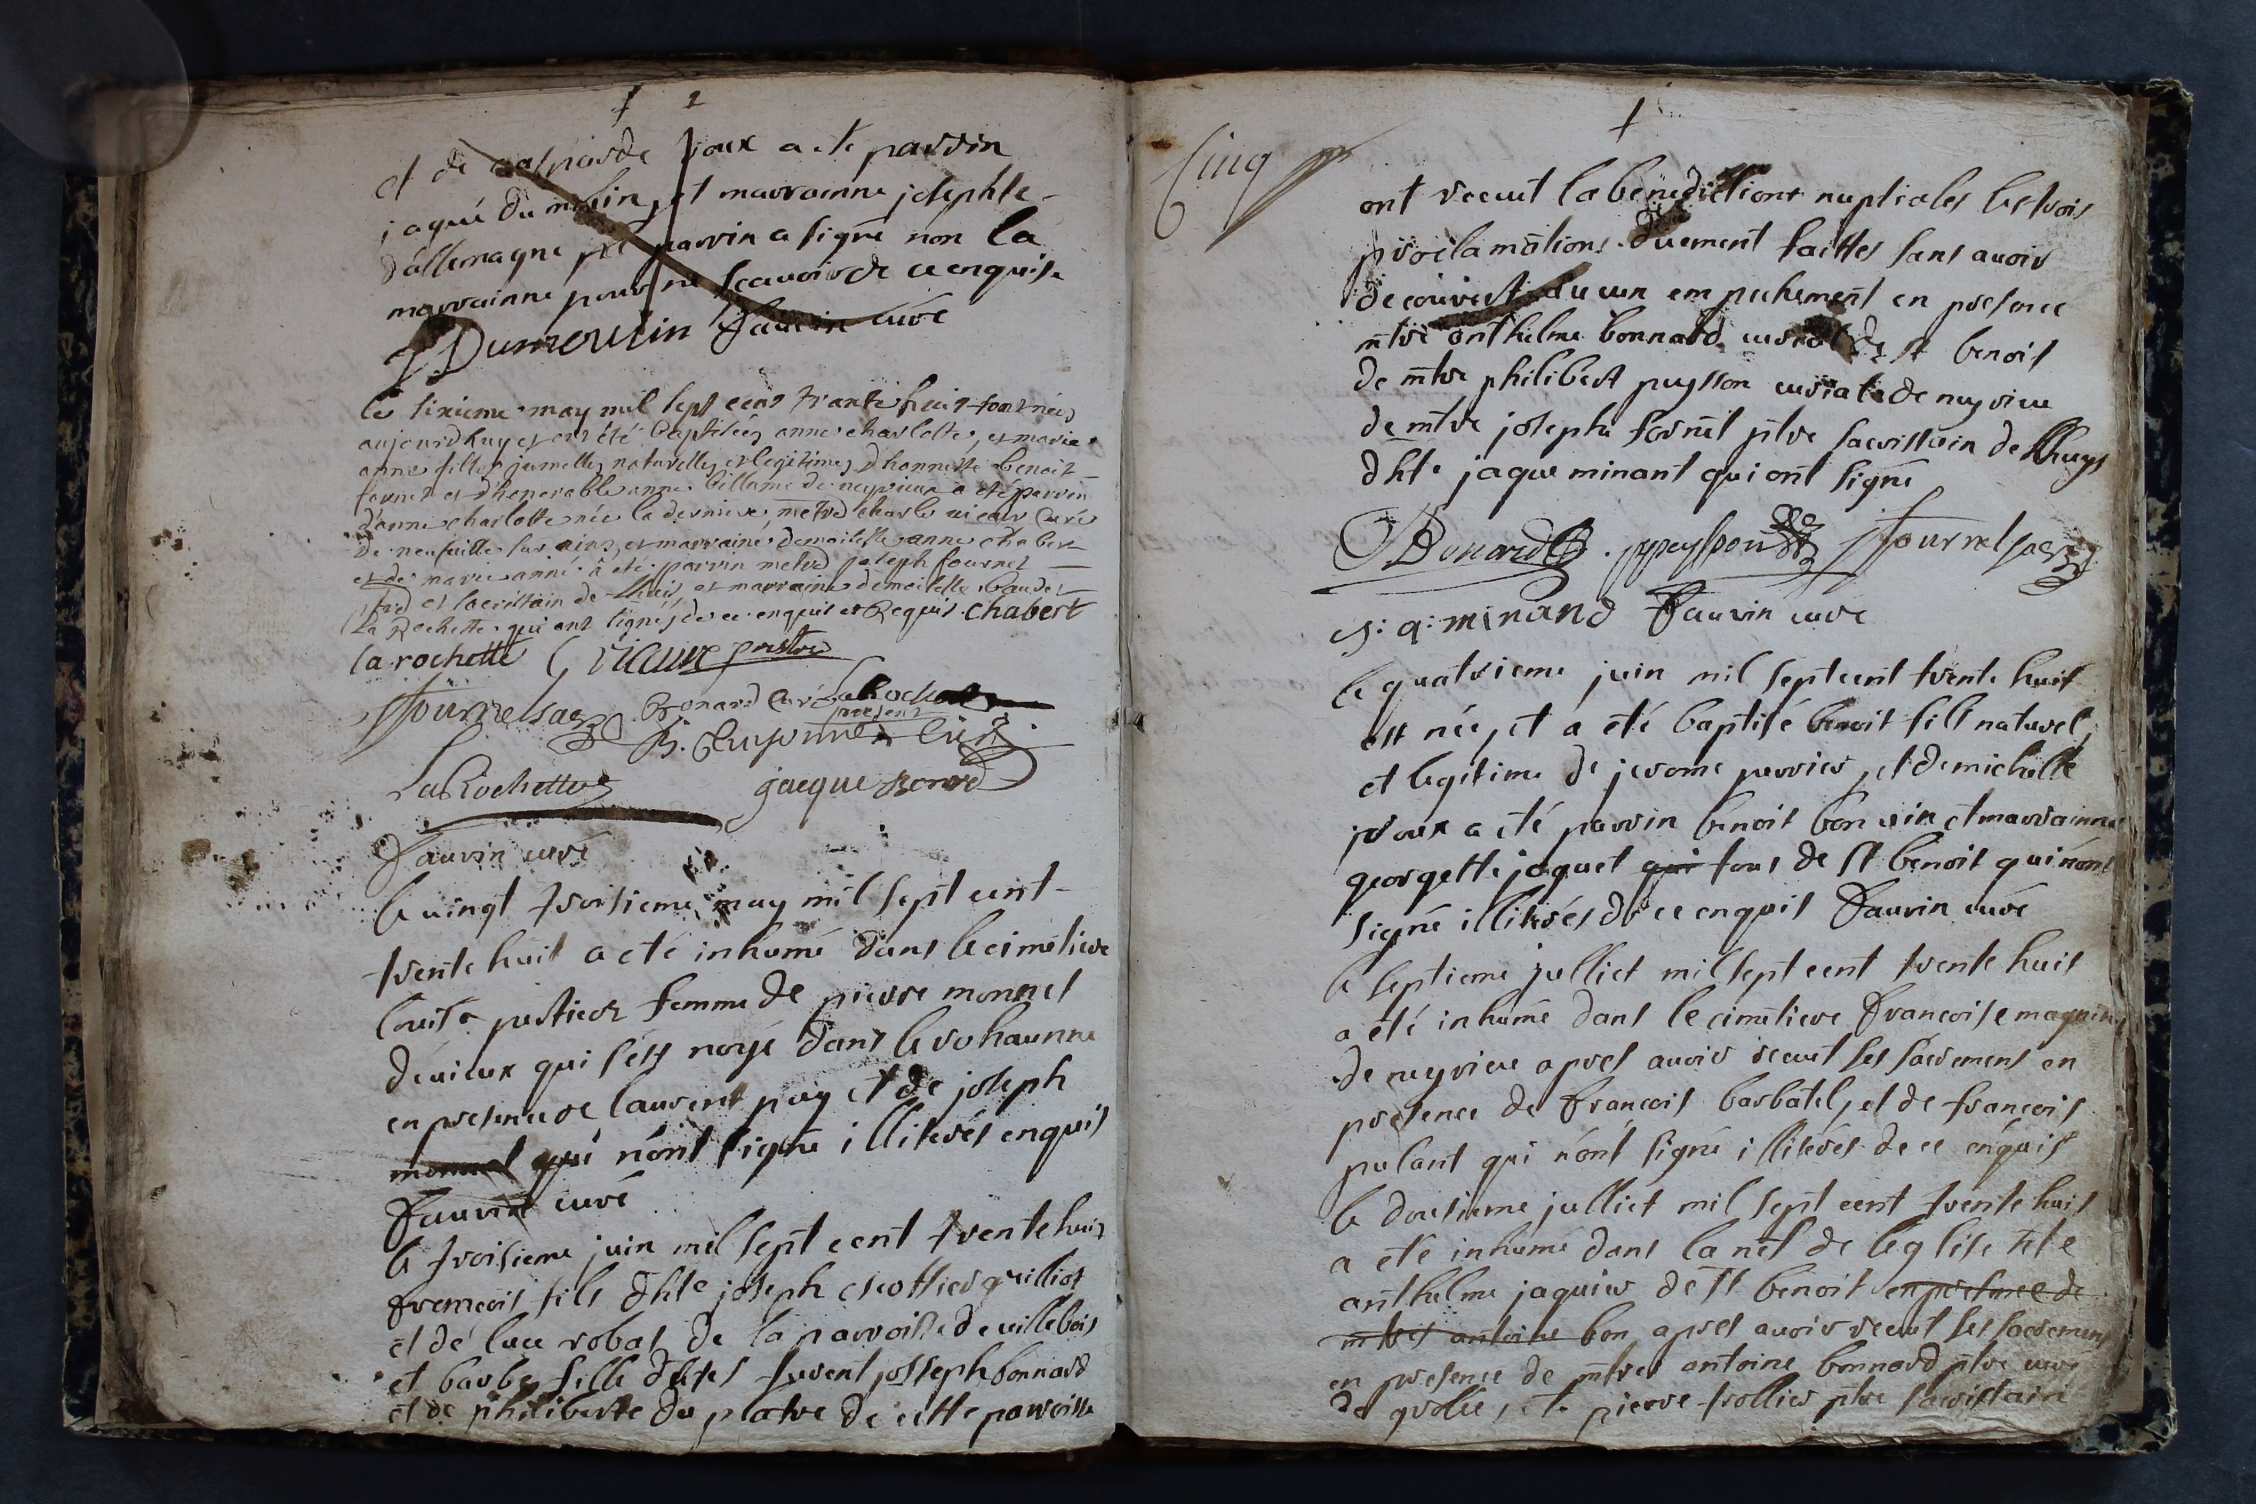 et de gasparde joux a ete parrin
jaque du molin, et marrainne josephte
dallemagne le parrin a signé non la
marrainne pour ne scavoir de ce enquise
J Dumoulin Fauvin curé
le sixieme may mil sept cent trante huit sont nées
aujourdhuy et ont été baptisées anne charlotte, et marie
anne filles jumelles naturelles et legitimes d'honneste benoit
fournet et d'honorable anne billame de neyrieux a été parrin
d'anne charlotte née la derniere, metre charle vicaire Curé
de neufville sur ains, et marraine demoiselle anne chabert
et de marie anne a été parrin metre joseph fournet
ptre et sacristain de lhuis, et marraine demoiselle baudet
la Rochette qui ont signés de ce enquis et Requis chabert
la rochette C viaure prestre
J fournet sac Bonard Curé LaRochette
present
B. Curé
LaRochette jacque Bonard
Fauvin curé
le vingt troisieme may mil sept cent
trente huit a été inhumé dans le cimetiere
louise pertieor femme de pierre monnet
devieux qui sest noyé dans le rohaunne
en presence de laurent puy et de joseph
monnet qui nont signé illiterés enquis
Fauvin curé
le troisieme juin mil sept cent trente huit
francois fils dhte joseph escottier quilliot
et de luce robat de la parroisse de villebois
et barbe fille dhtes furent josseph bonnard
et de philiberte du platre de cette parroisse
Cinq
ont receut la benedictiont nuptiales les trois
proclamations duement faittes sans avoir
decouvert aucun empechement en presence
mtre anthelme bonnard curé de st benoit
de mtre philibert puysson curiat de neyrieu
de mtre joseph fornet ptre sacristain de Lhuys
dhte jaque minant qui ont signé
Bonard ppeysson J fournel sac
J: q: minand Fauvin curé
le quatrieme juin mil sept cent trente huit
est née, et a été baptisé benoit fils naturel,
et legitime de jerome perrier, et de michelle
joux a été parrin benoit bon vin et marrainne
georgette jaquet qui tous de st benoit qui nont
signé illiterés de ce enquis Fauvin curé
le septieme julliet mil sept cent trente huit
a été inhumé dans le cimetiere francoise magnin
de neyrieu apres avoir receut ses sacrement en
presence de francois barbatel, et de francois
pulant qui nont signé illiterés de ce enquis
le dousieme julliet mil sept cent trente huit
a été inhumé dans la nef de leglise hte
anthelme jaquier de st benoit en presence de
mtres antoine bon apres avoir receut ses sacrement
en presence de mtres antoine bonnard ptre curé
de grolée, et pierre trollier ptre sacristain